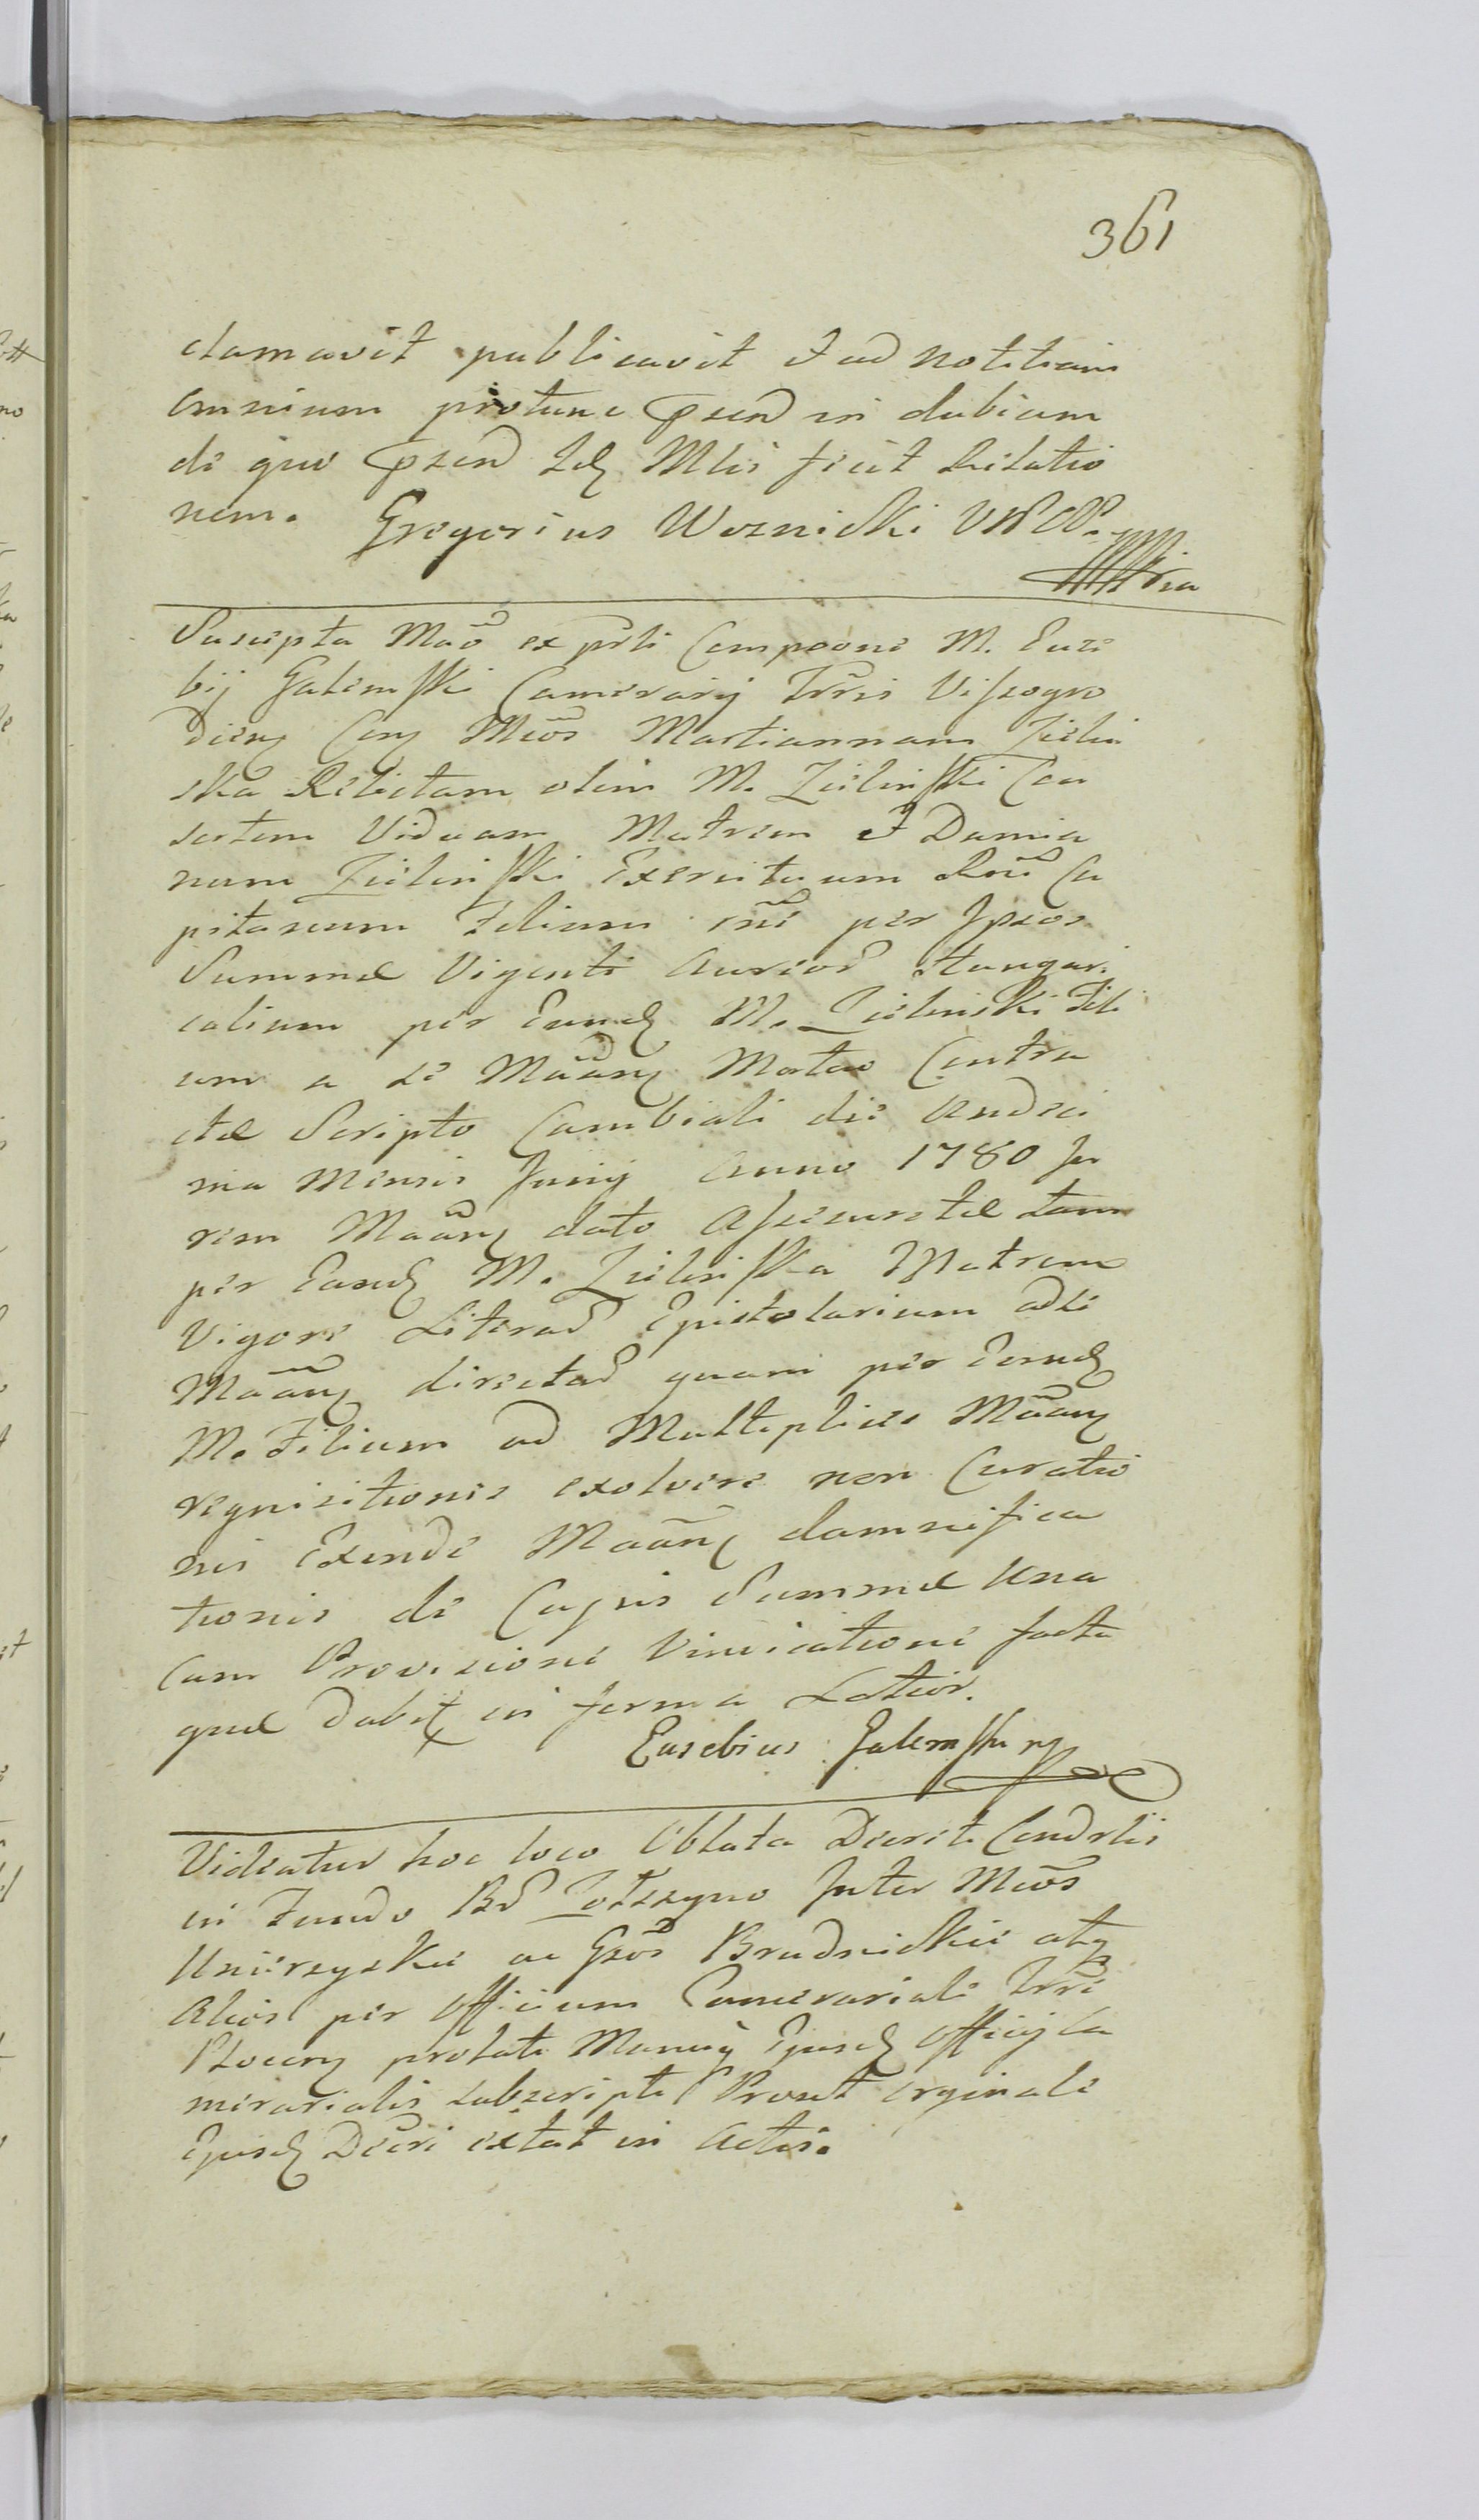 361
clamavit publicavit et ad notitiam
omnium protunc psen in dubium
de quo psen Idq Mlis fecit Relatio
nem. Gregorius Woznicki
Suscepta Mao ex prti Compaone M. Euze
bij Galemski Camerarij Trris Viszogro
dien Con Mcos Martiannam Zielin
ska Relictam olim M. Zielinski Con
sortem Viduam Matrem et Damia
num Zielinski Exercituum Ca
pitaneum Filium per Ipsos
Summæ Viginti Aureor Hungari
calium per Eundq M. Zielinski Fili
um a se Maang Mortuo Contra
ctæ Scripto Cambiali die Undeci
ma Mensis Junij Anno 1780 fa
rem Maang dato Assecuratæ tam
per Eandq M. Zielinska Matrem
Vigore Literar Epistolarium ad se
Maang directar quam per Eundq
M. Filium ad Multiplices Maang
requisitiones exolvere non Curatio
nis Exinde Maang damnifica
tionis de Cujus Summæ Una
Cum Provisione Vindicatione facta
quæ dabit in forma Latior.
Eusebius Galemski
Videatur hoc loco Oblata Decreti Condrlis
in Fundo Br Inter Mcos
Unierzyskie ac Gsos Brudnickie atq
Alios per Officium Camerariale Trre
Plocen prolati Manuq Ejusdq Officij Ca
merarialis subscripti Prout orginale
Ejusdq Decri extat in Actis.